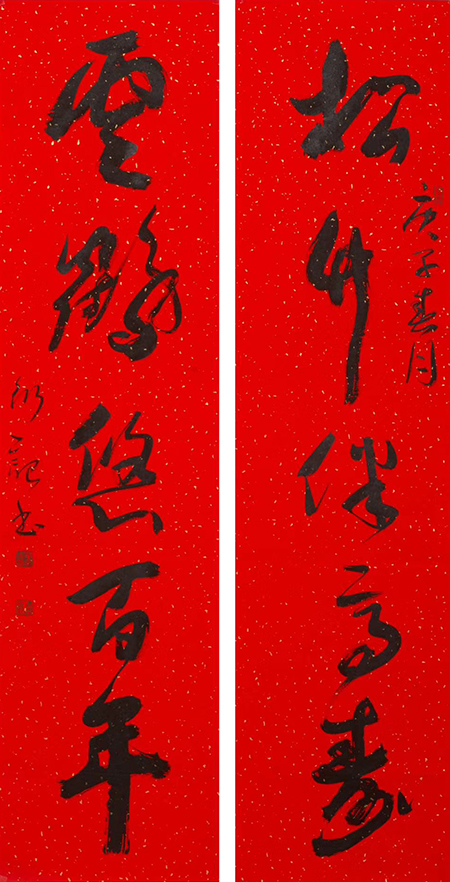 松竹伴高寿
庚子春月
云鹤悠百年